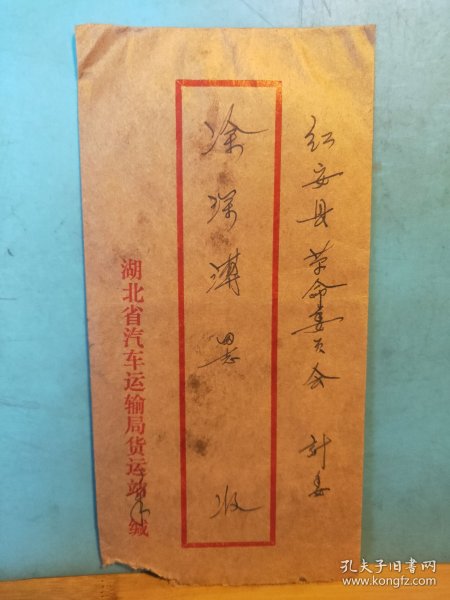 红安县革命委员会 计委
涂瑞溥 同志 收
湖北省汽车运输局货运站 缄
孔夫子旧书网
www.kongfz.com